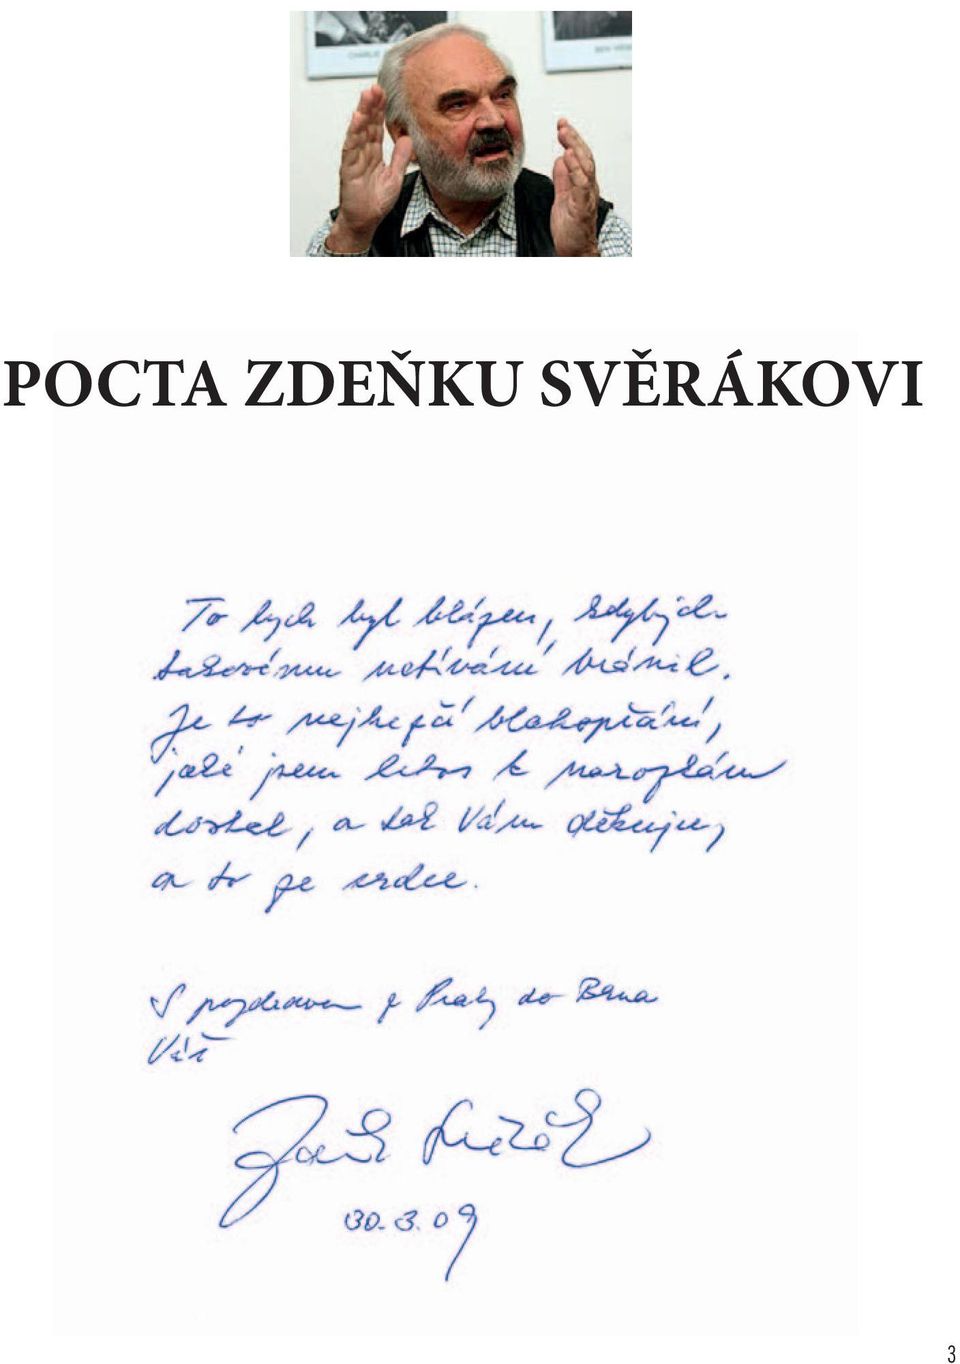 POCTA ZDEŇKU SVĚRÁKOVI
To bych byl blázen, kdybych
takovému uctívání bránil.
Je to nejhezčí blahopřání,
jaké jsem letos k narozkám
dostal, a tak Vám děkuju,
a to ze srdce.
S pozdravem z Prahy do Brna
Váš
Zdeněk Svěrák
30. 3. 09
3